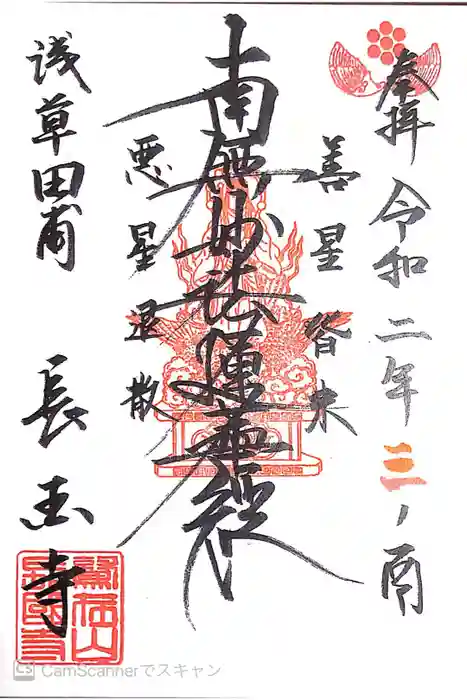 奉拝 令和二年三ノ酉
善星皆来
南無妙法蓮華經
悪星退散
浅草田甫 長国寺
鷲在山
長國寺
CS CamScannerでスキャン